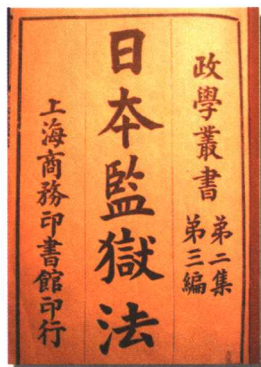 政學叢書
第二集
第三編
日本監獄法
上海商務印書館印行